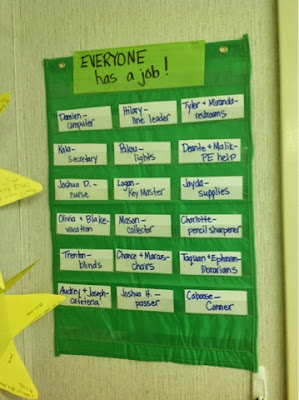 EVERYONE
has a job!
Damien-
computer
Hilary-
line leader
Tyler & Miranda-
restrooms
Kala-
secretary
Pakou-
lights
Deante & Malik-
PE help
Joshua D. -
nurse
Logan-
Key Master
Jayda-
supplies
Olivia & Blake-
vacation
Mason-
collector
Charlotte-
pencil sharpener
Trenton-
blinds
Chance & Marcus-
chairs
Taquan & Ephraim-
librarians
Audrey & Joseph-
cafeteria
Joshua H. -
passer
Caboose-
Conner